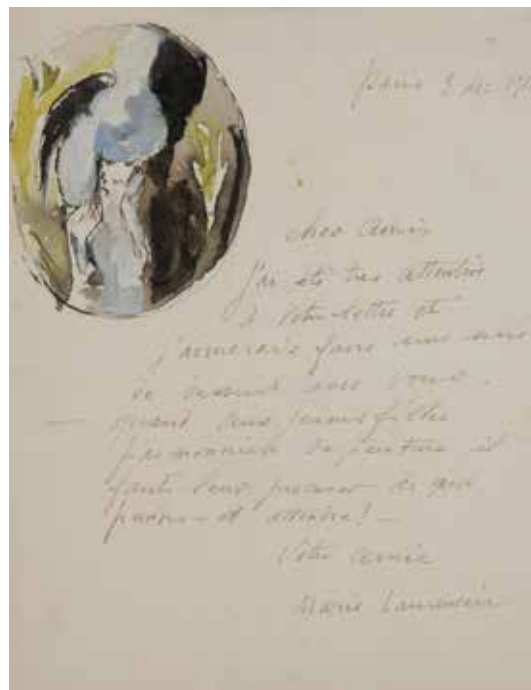 Paris 3 dec
cher ami
J'ai été très attentive
à votre lettre et
j'aimerais faire une
de avec vous.
quand aux jeunes filles
de peinture il
faut leur procurer de quoi
et attendre! —
Votre amie
Marie Laurencin